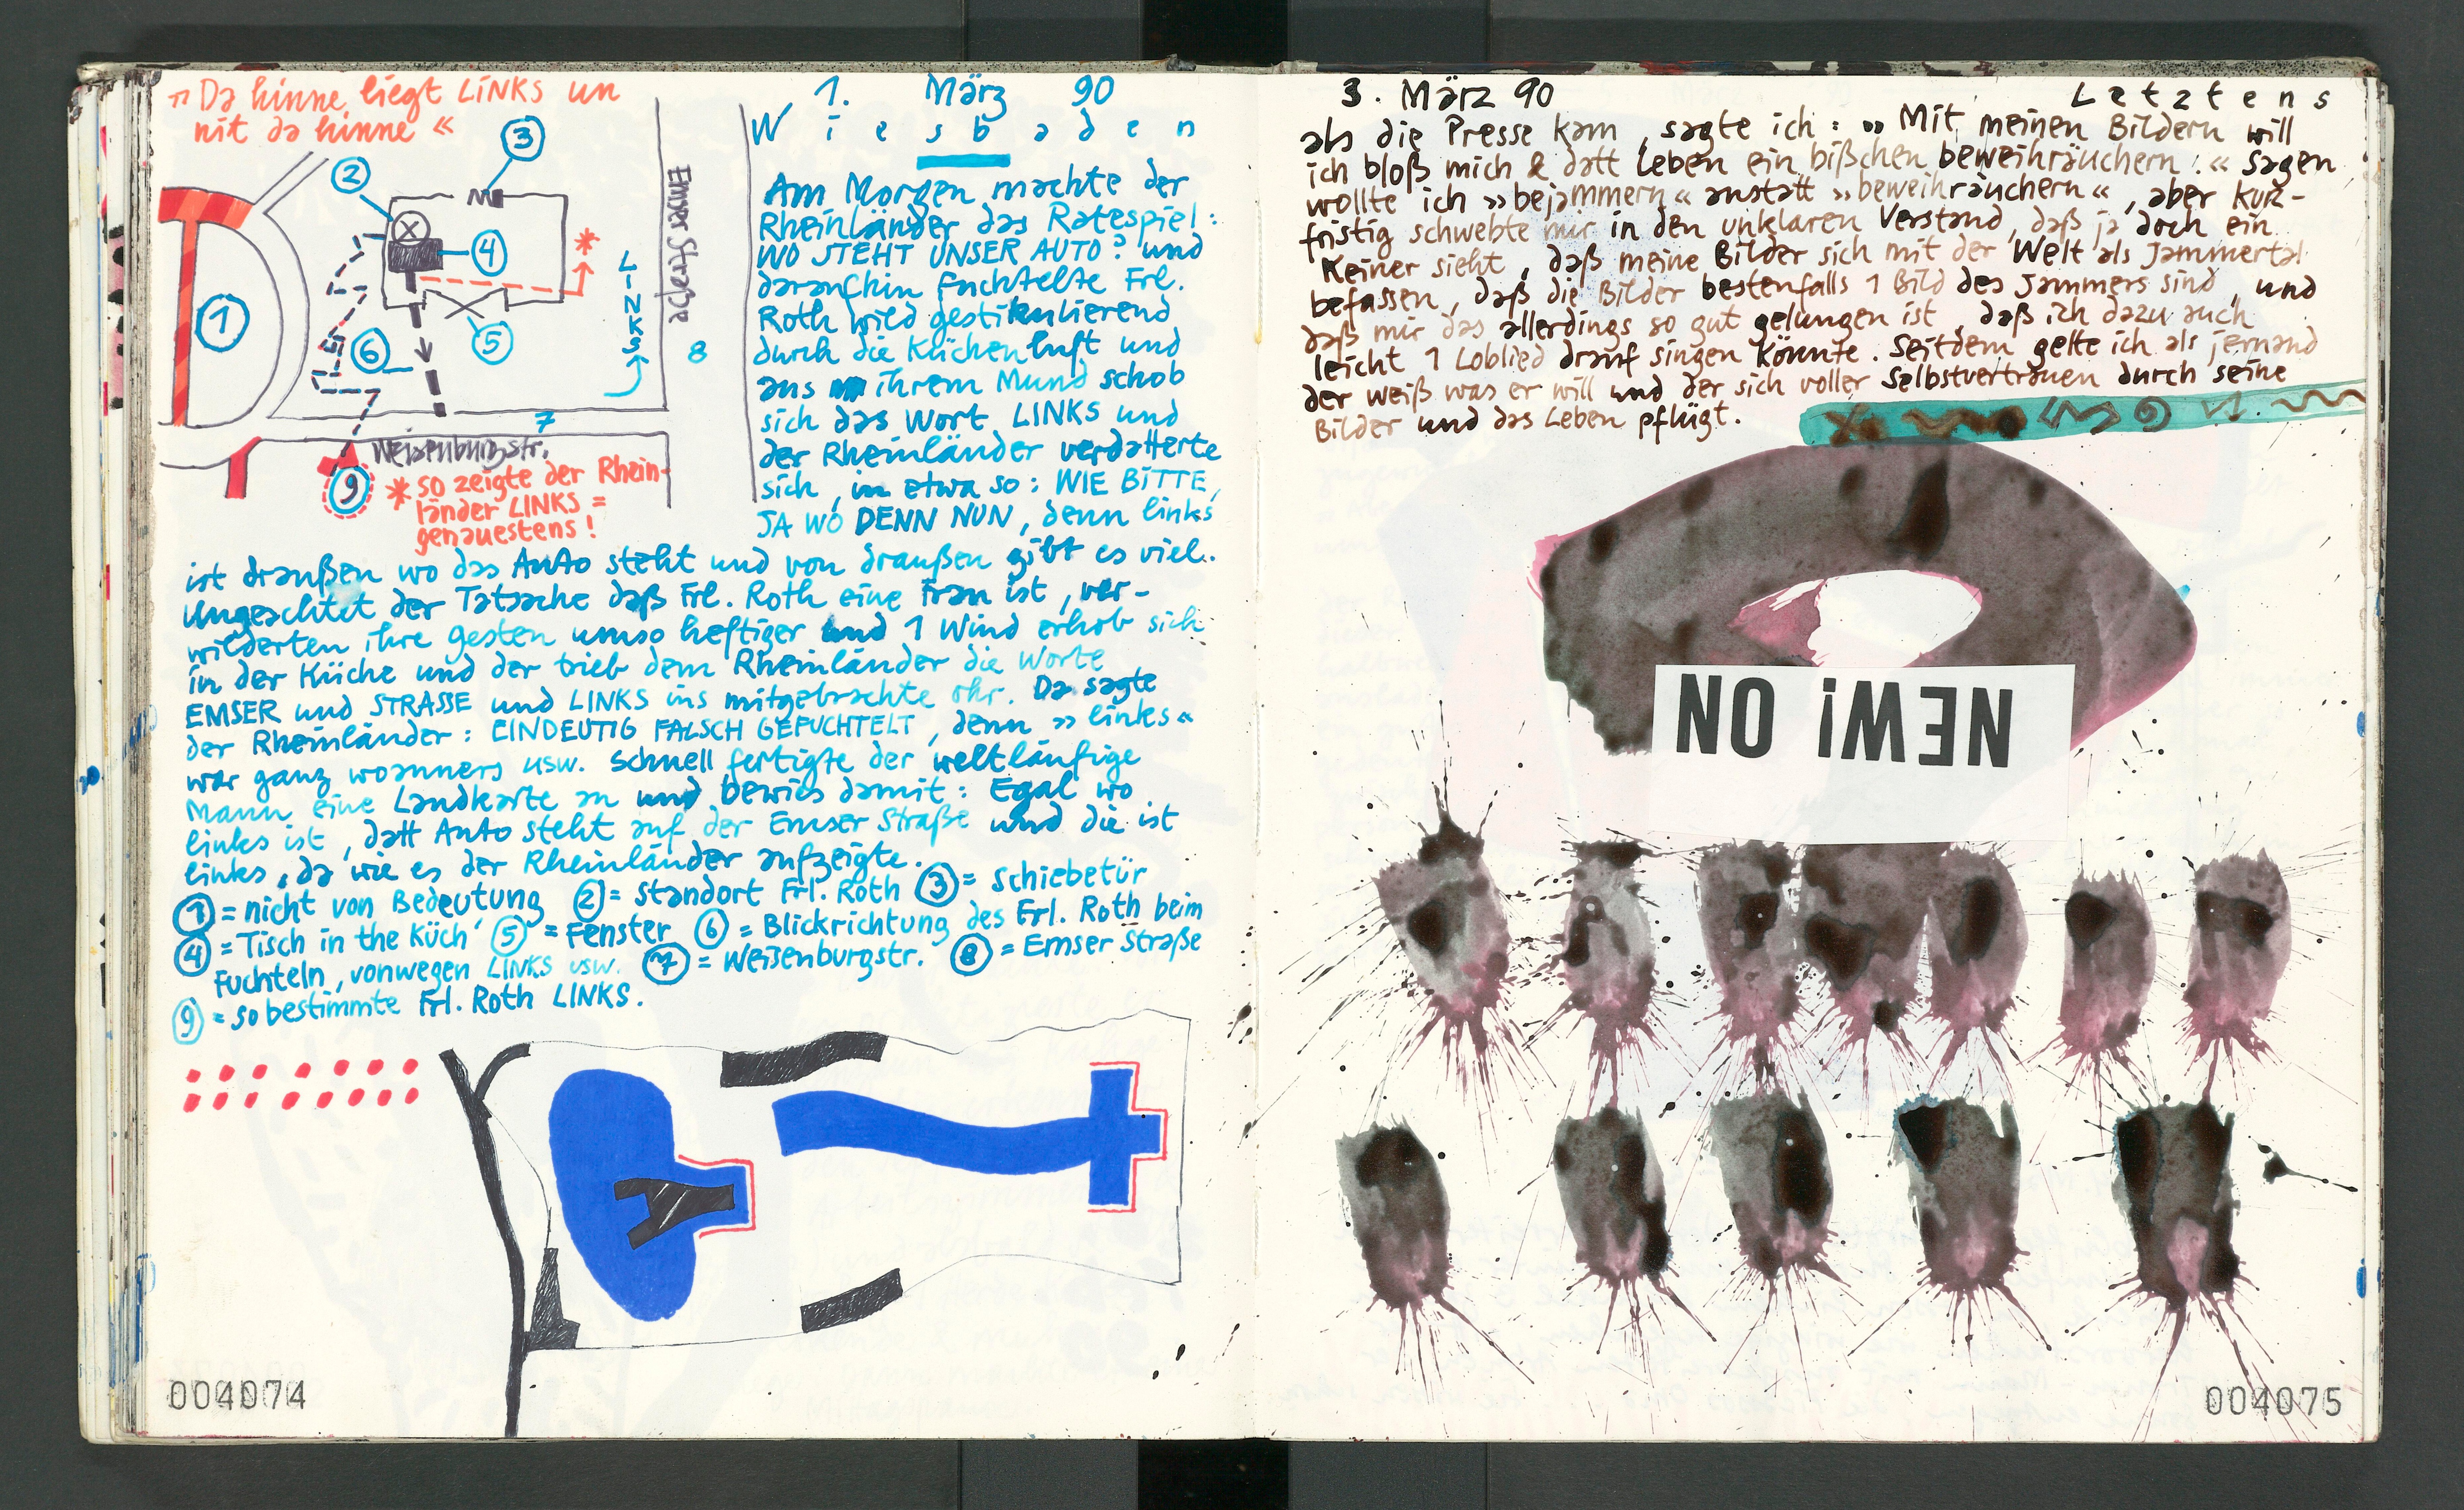 »Da hinne liegt LINKS un
nit da hinne«
1. März 90
Wiesbaden
Am Morgen machte der
Rheinländer das Ratespiel:
WO STEHT UNSER AUTO? und
daraufhin fuchtelte Frl.
Roth wild gestikulierend
durch die Küchenluft und
aus ihrem Mund schob
sich das Wort LINKS und
der Rheinländer verdatterte
sich, in etwa so: WIE BITTE,
JA WO DENN NUN, denn links
ist draußen wo das Auto steht und von draußen gibt es viel.
Ungeachtet der Tatsache daß Frl. Roth eine Frau ist, ver-
wilderten ihre Gesten umso heftiger und 1 Wind erhob sich
in der Küche und der trieb dem Rheinländer die Worte
EMSER und STRASSE und LINKS ins mitgebrachte Ohr. Da sagte
der Rheinländer: EINDEUTIG FALSCH GEFUCHTELT, denn »links«
war ganz woanners usw. Schnell fertigte der weltläufige
Mann eine Landkarte an und bewies damit: Egal wo
links ist, datt Auto steht auf der Emser Straße und die ist
links, da wie es der Rheinländer aufzeigte.
1 = nicht von Bedeutung 2 = Standort Frl. Roth 3 = Schiebetür
4 = Tisch in the Küch' 5 = Fenster 6 = Blickrichtung des Frl. Roth beim
Fuchteln, vonwegen LINKS usw. 7 = Weißenburgstr. 8 = Emser Straße
9 = so bestimmte Frl. Roth LINKS.
1
2
3
4
5
6
7
8
9
Emser Straße
LINKS
Weißenburgstr.
* so zeigte der Rhein-
länder LINKS =
genauestens!
004074
3. März 90 Letztens
als die Presse kam, sagte ich: »Mit meinen Bildern will
ich bloß mich & datt Leben ein bißchen beweihräuchern!« Sagen
wollte ich »bejammern« anstatt »beweihräuchern«, aber kurz-
fristig schwebte mir in den unklaren Verstand, daß ja doch ein
Keiner sieht, daß meine Bilder sich mit der Welt als Jammertal
befassen, daß die Bilder bestenfalls 1 Bild des Jammers sind, und
daß mir das allerdings so gut gelungen ist, daß ich dazu auch
leicht 1 Loblied drauf singen könnte. Seitdem gelte ich als jemand
der weiß was er will und der sich voller Selbstvertrauen durch seine
Bilder und das Leben pflügt.
NEW! NO
004075